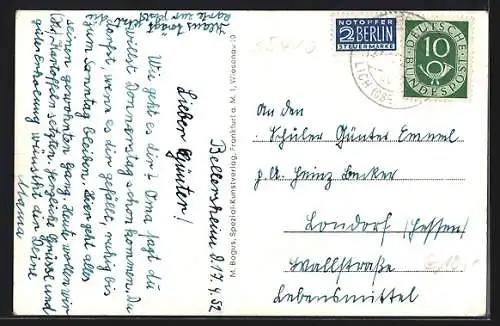 Klaus bringt
Karte zur Post
Bellersheim d. 17.4.52
Lieber Günter!
Wie geht es dir? Oma sagt du
willst Donnerstag schon kommen. Du
darfst, wenn es dir gefällt, ruhig bis
zum Sonntag bleiben. Hier geht alles
seinen gewohnten Gang. Heute wollen wir
Kartoffeln setzen. Herzliche Grüsse und
gute Erholung wünscht dir Deine
Mama
M. Bogus, Spezial-Kunstverlag, Frankfurt a. M. 1, Wiesenau 10
NOTOPFER
2 BERLIN
STEUERMARKE
DEUTSCHE
BUNDESPOST
10
LICH
An den
Schüler Günter Emmel
p. A. Heinz Becker
Londorf (Hessen)
Wallstraße
Lebensmittel